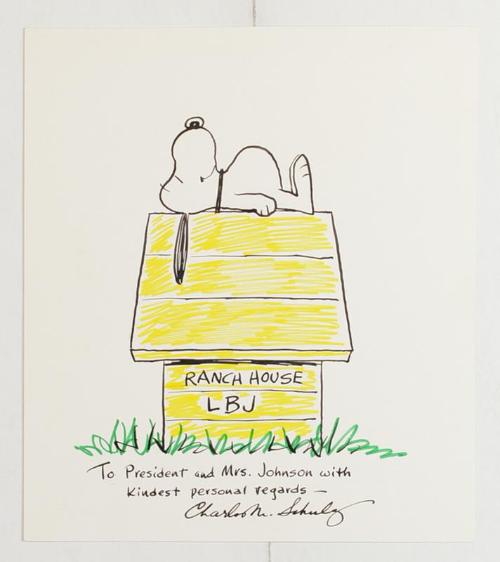 RANCH HOUSE
LBJ
To President and Mrs. Johnson with
kindest personal regards —
Charles M. Schulz